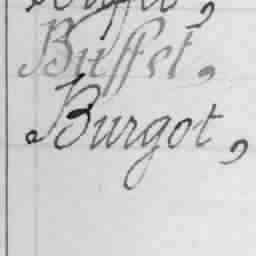 Buffet,
Burgot,